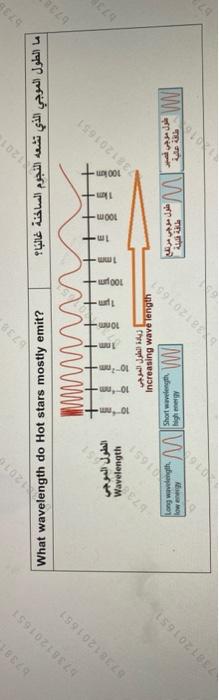 What wavelength do Hot stars mostly emit?
ما الطول الموجي الذي تشعه النجوم الساخنة غالبًا؟
الطول الموجي
Wavelength
1 nm
10 nm
1 µm
100 µm
1 mm
1 m
100 m
1 km
100 km
زيادة الطول الموجي
Increasing wave length
Long wavelength,
low energy
Short wavelength,
high energy
طول موجي مرتفع
طاقة قليلة
طول موجي قصير
طاقة عالية